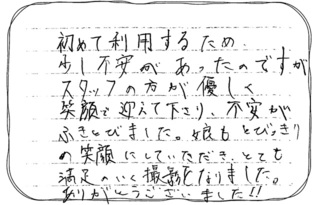 初めて利用するため
少し不安があったのですが
スタッフの方が優しく
笑顔で迎えて下さり、不安が
ふきとびました。娘もとびっきり
の笑顔にしていただき、とても
満足のいく撮影となりました。
ありがとうございました!!